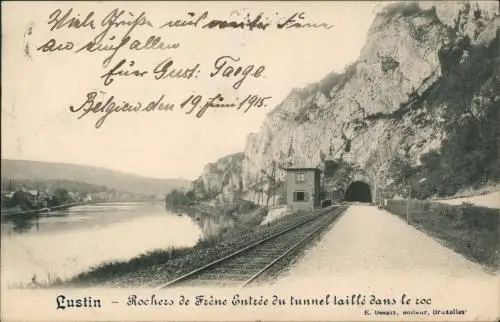 Viele Grüße aus weiter Ferne
an euch allen
Euer Gust. Taege
Belgien den 19. Juni 1915
Lustin - Rochers de Frêne Entrée du tunnel taillé dans le roc
E. Desaix, éditeur, Bruxelles